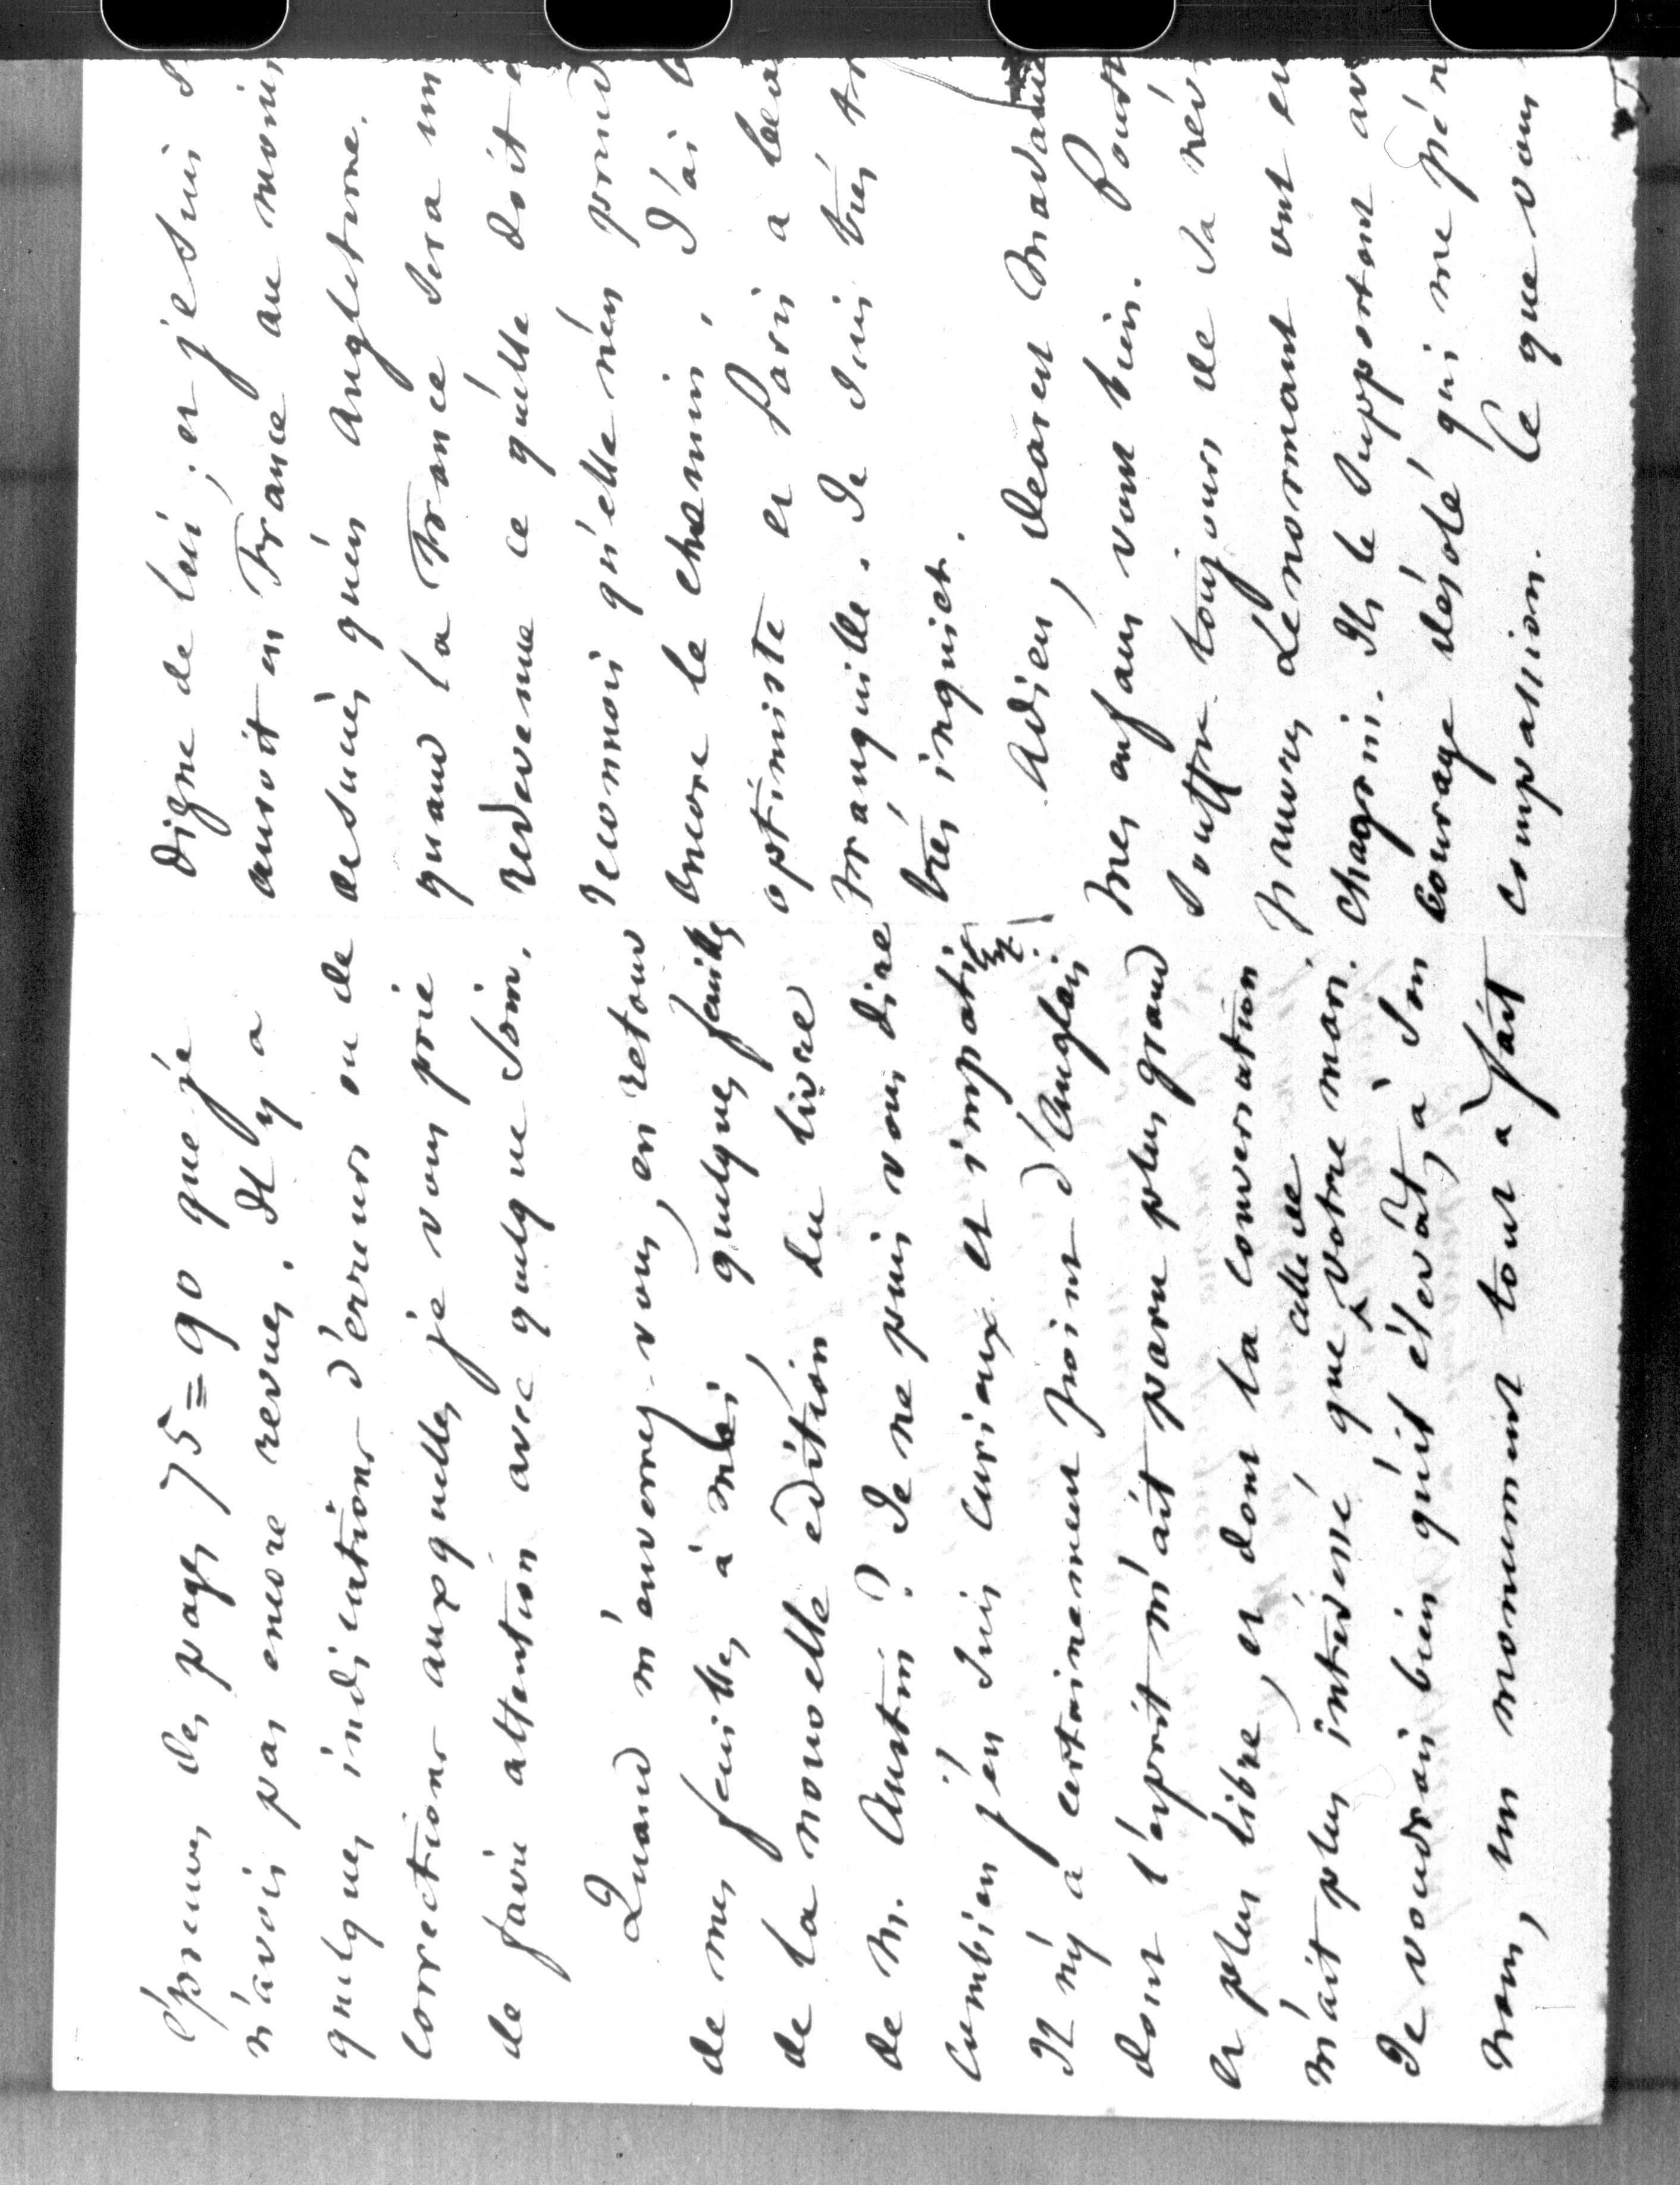 épreuves des pages 75=90 que je
n'avois pas encore revues. Il y a
quelques indications d'erreurs ou de
corrections auxquelles je vous prie
de faire attention avec quelque soin.
Quand m'enverrez-vous, en retour
de mes feuilles à moi, quelques feuilles
de la nouvelle édition du livre
de M. Austin ? Je ne puis vous dire
combien j'en suis curieux et impatient.
Il n'y a certainement point d'Anglais
dont l'esprit m'ait paru plus grand
et plus libre, et dont la conversation
m'ait plus intéressé que celle de votre mari.
Je voudrais bien qu'il élevât, à son
nom, un monument tout à fait
digne de lui ; et je suis
auroit en France au moins
de succès qu'en Angleterre.
quand la France sera
redevenue ce qu'elle doit
reconnois qu'elle n'en prend
encore le chemin. J'ai
optimiste et Paris a beau
tranquille. Je suis très
très inquiet.
Adieu, dearest Madame
Mes enfans vont bien.
souffre toujours de sa
pauvres Lenormant ont
chagrin. Ils le supportent
courage désolé qui me
compassion. Ce que vous